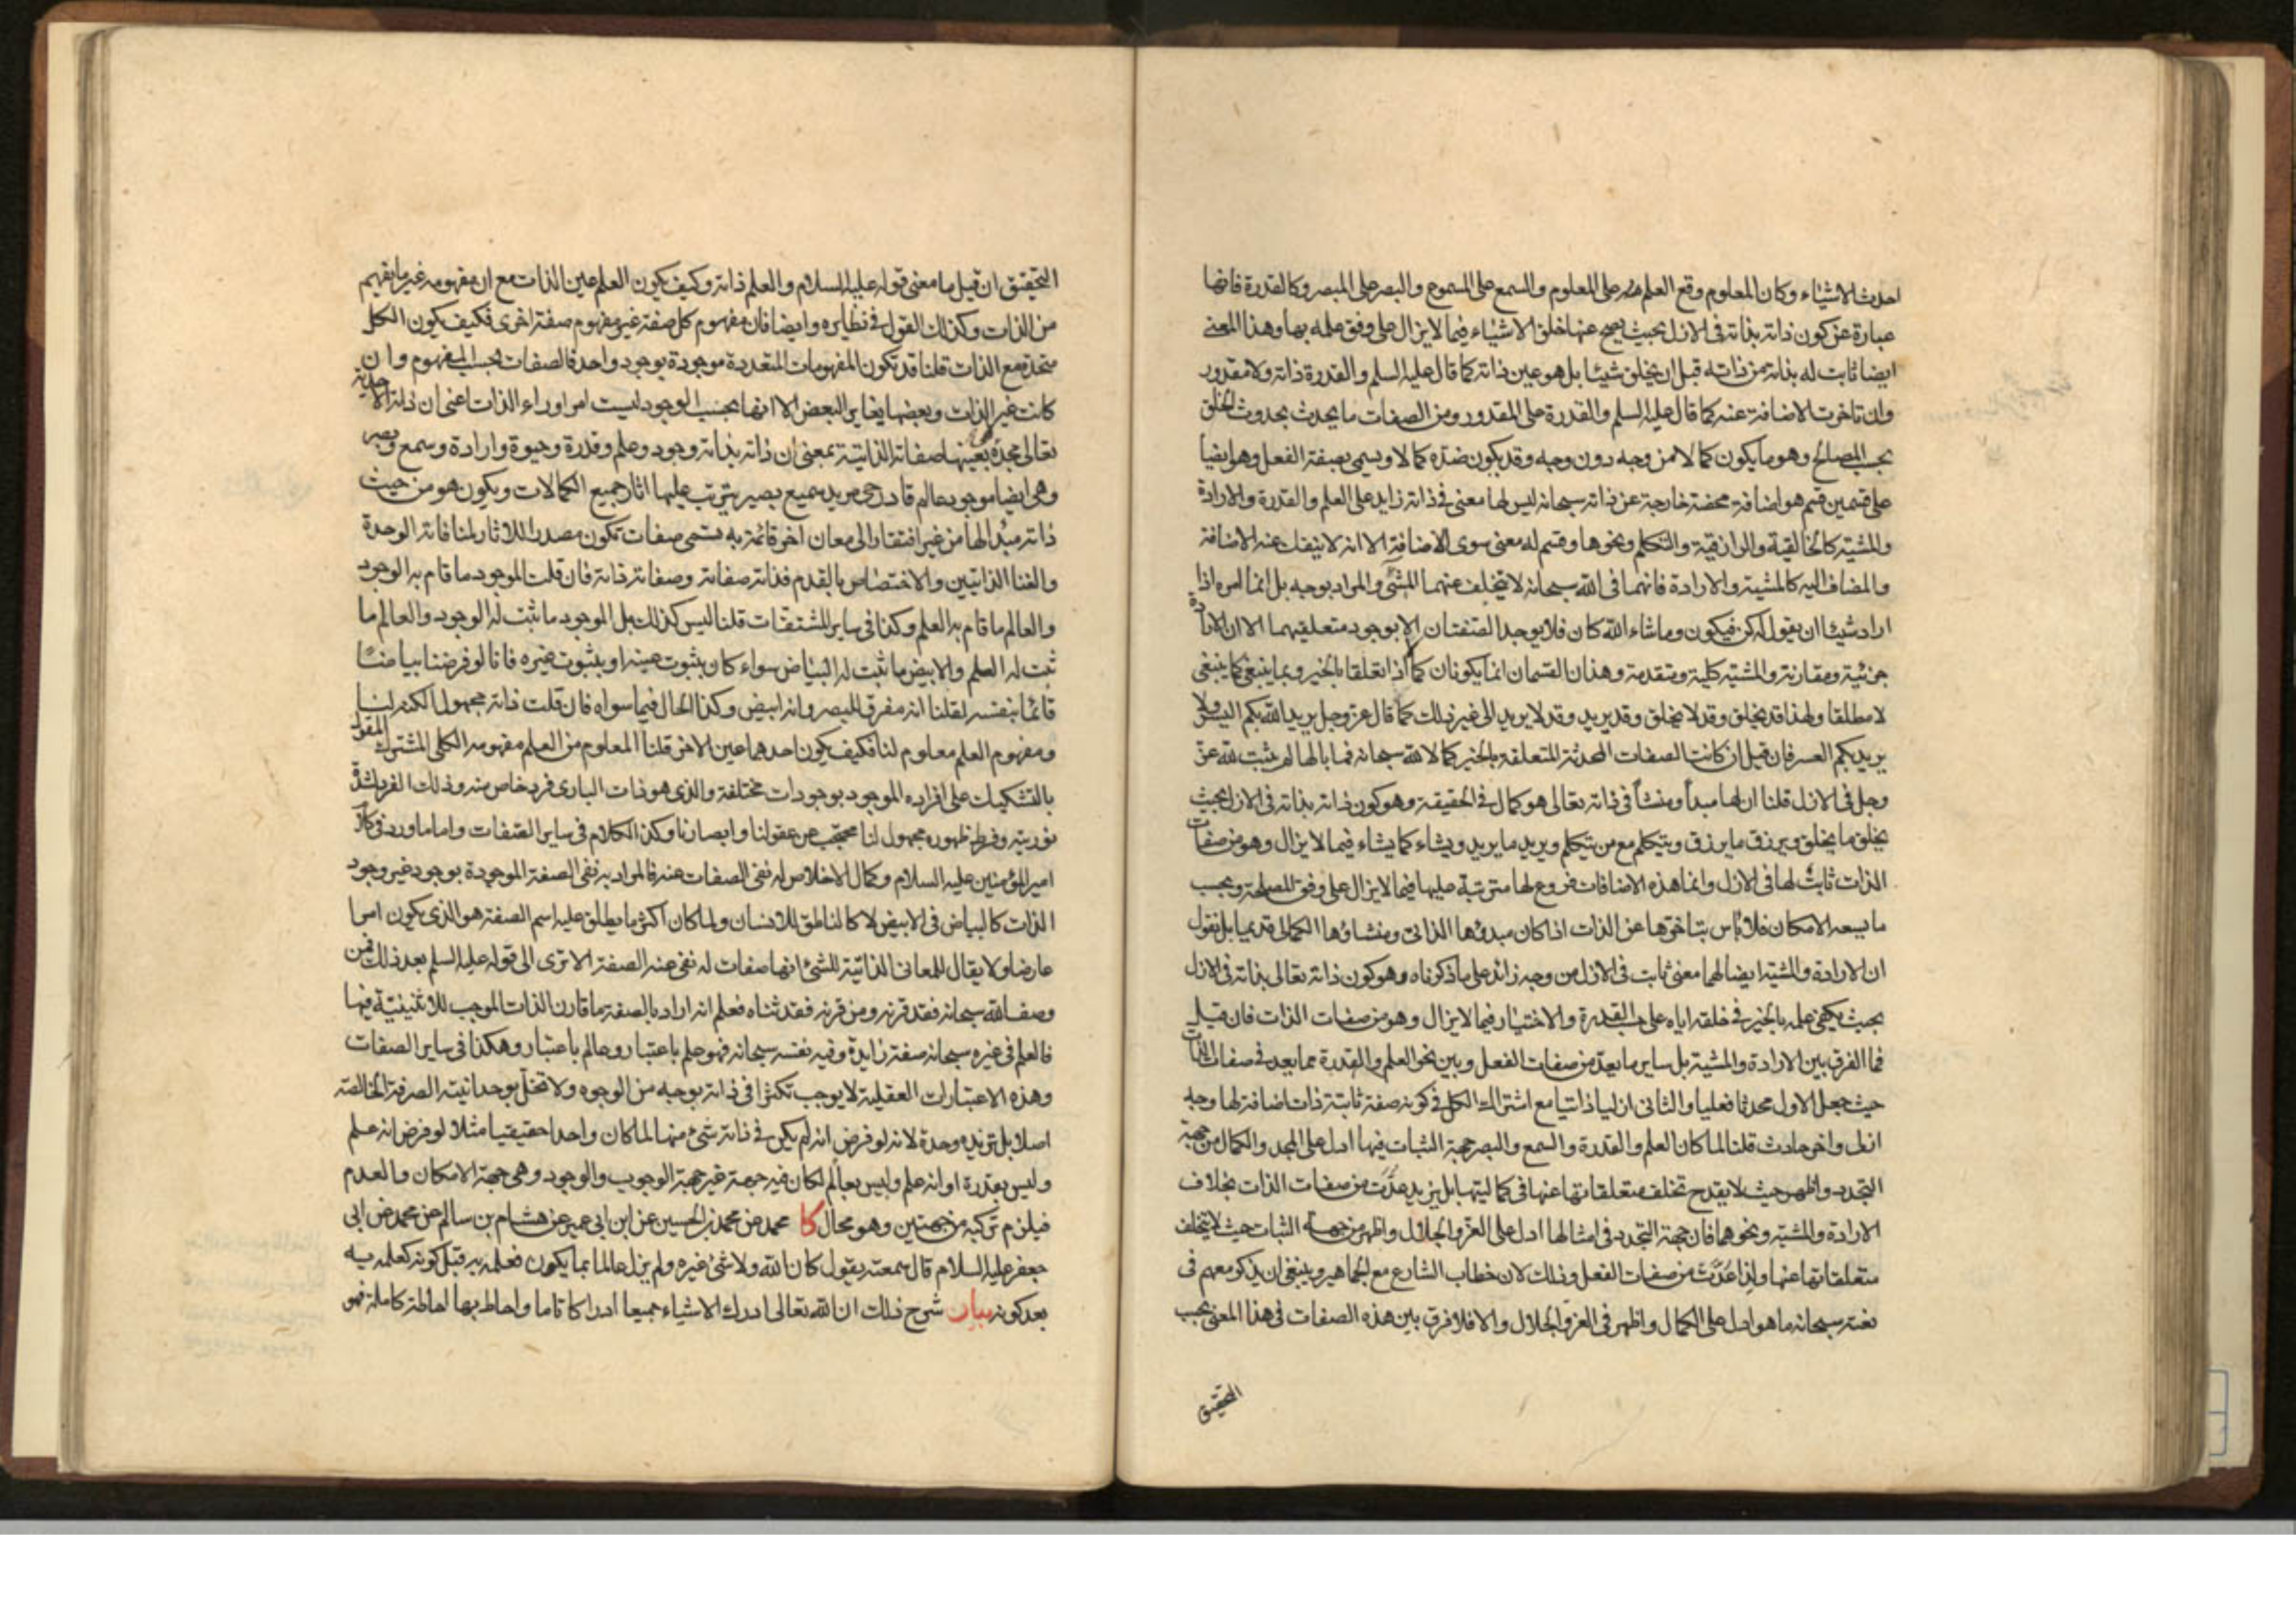 احدث الاشياء وكان المعلوم وقع العلم منه على المعلوم والسمع على المسموع والبصر على المبصر وكالقدرة فانها
عبارة عن كون ذاته بذاته فى الازل بحيث يصح عنها خلق الاشياء فيما لايزال على وفق علمه بها وهذا المعنى
ايضا ثابت له بذاته من ذاته قبل ان يخلق شيئا بل هو عين ذاته كما قال عليه السلم والقدرة ذاته ولا مقدور
وان تاخرت الاضافة عنه كما قال عليه السلم والقدرة على المقدور ومن الصفات ما يحدث بحدوث الخلق
بحسب المصالح وهو ما يكون كمالا من وجه دون وجه وقد يكون ضده كمالا ويسمى بصفة الفعل وهو ايضا
على قسمين قسم هو اضافة محضة خارجة عن ذاته سبحانه ليس لها معنى فى ذاته زايد على العلم والقدرة والارادة
والمشية كالخالقية والرازقية والتكلم ونحوها وقسم له معنى سوى الاضافة الا انه لا ينفك عنه الاضافة
والمضاف اليه كالمشية والارادة فانهما فى الله سبحانه لا يتخلف عنهما المشئ والمراد بوجه بل انما امره اذا
اراد شيئا ان يقول له كن فيكون وما شاء الله كان فلا يوجد الصفتان الا بوجود متعلقيهما الا ان الارادة
جزئية ومقارنة والمشية كلية ومتقدمة وهذان القسمان انما يكونان كمالا اذا تعلقا بالخير وبما ينبغى كما ينبغى
لا مطلقا ولهذا قد يخلق وقد لا يخلق وقد يريد وقد لا يريد الى غير ذلك كما قال عز وجل يريد الله بكم اليسر ولا
يريد بكم العسر فان قيل ان كانت الصفات المحدثة المتعلقة بالخير كمالا لله سبحانه فما بالها لم يثبت لله عز
وجل فى الازل قلنا ان لها مبدأ ومنشأ فى ذاته تعالى هو كمال فى الحقيقة وهو كون ذاته بذاته فى الازل بحيث
يخلق ما يخلق ويرزق ما يرزق ويتكلم مع من يتكلم ويريد ما يريد ويشاء كما يشاء فيما لا يزال وهو من صفات
الذات ثابت لها فى الازل وانما هذه الاضافات فروع لها مترتبة عليها فيما لا يزال على وفق المصلحة وبحسب
ما يسعه الامكان فلا باس بتاخرها عن الذات اذا كان مبدؤها الذاتى ومنشاؤها الكمالى قديما بل نقول
ان الارادة والمشية ايضا لهما معنى ثابت فى الازل من وجه زائد على ما ذكرناه وهو كون ذاته تعالى بذاته فى الازل
بحيث يكفى علمه بالخير فى خلقه اياه على حسب القدرة والاختيار فيما لا يزال وهو من صفات الذات فان قيل
فما الفرق بين الارادة والمشية بل ساير ما يعد من صفات الفعل وبين نحو العلم والقدرة مما يعد فى صفات الذات
حيث جعل الاول محدثا فعليا والثانى ازليا ذاتيا مع اشتراك الكل فى كونه صفة ثابتة ذات اضافة لها وجه
ازلى واخر حادث قلنا لما كان العلم والقدرة والسمع والبصر جهة الثبات فيها ادل على المجد والكمال من جهة
التجدد واظهر حيث لا يقدح تخلف متعلقاتها عنها فى كماليتها بل يزيد عدّت من صفات الذات بخلاف
الارادة والمشية ونحوهما فان جهة التجدد فى امثالها ادل على العز والجلال واظهر من جهة الثبات حيث لا يتخلف
متعلقاتها عنها واذا عدّت من صفات الفعل وذلك لان خطاب الشارع مع الجماهير وينبغى ان يذكر معهم فى
نعته سبحانه ما هو ادل على الكمال واظهر فى العز والجلال والا فلا فرق بين هذه الصفات فى هذا المعنى بحسب
التحقيق
التحقيق ان قيل ما معنى قوله عليه السلام والعلم ذاته وكيف يكون العلم عين الذات مع ان مفهومه غير ما يفهم
من الذات وكذلك القول فى نظايره وايضا فان مفهوم كل صفة غير مفهوم صفة اخرى فكيف يكون الكل
متحدة مع الذات قلنا قد تكون المفهومات المتعددة موجودة بوجود واحد فالصفات بحسب المفهوم وان
كانت غير الذات وبعضها يغاير البعض الا انها بحسب الوجود ليست امرا وراء الذات اعنى ان ذاته الاحدية
تعالى مجده بعينها صفاته الذاتية بمعنى ان ذاته بذاته وجود وعلم وقدرة وحيوة وارادة وسمع وبصر
وهى ايضا موجود عالم قادر حى مريد سميع بصير يترتب عليها اثار جميع الكمالات ويكون هو من حيث
ذاته مبدأ لها من غير افتقار الى معان اخر قائمة به تسمى صفات تكون مصدرا للاثار لمنافاته الوحدة
والغنا الذاتيين والاختصاص بالقدم فذاته صفاته وصفاته ذاته فان قلت الموجود ما قام به الوجود
والعالم ما قام به العلم وكذا فى ساير المشتقات قلنا ليس كذلك بل الموجود ما ثبت له الوجود والعالم ما
ثبت له العلم والابيض ما ثبت له البياض سواء كان بثبوت عينه او بثبوت غيره فانا لو فرضنا بياضا
قائما بنفسه لقلنا انه مفرق للبصر وانه ابيض وكذا الحال فيما سواه فان قلت ذاته مجهول الكنه لنا
ومفهوم العلم معلوم لنا فكيف يكون احدهما عين الاخر قلنا المعلوم من العلم مفهومه الكلى المشترك المقول
بالتشكيك على افراده الموجود بوجودات مختلفة والذى هو ذات البارى فرد خاص منه وذلك الفرد لشدة
نوريته وفرط ظهوره مجهول لنا محتجب عن عقولنا وابصارنا وكذا الكلام فى ساير الصفات واما ما ورد فى كلام
امير المؤمنين عليه السلام وكمال الاخلاص له نفى الصفات عنه فالمراد به نفى الصفة الموجودة بوجود غير وجود
الذات كالبياض فى الابيض لا كالناطق للانسان ولما كان اكثر ما يطلق عليه اسم الصفة هو الذى يكون امرا
عارضا ولا يقال للمعانى الذاتية للشئ انها صفات له نفى عنه الصفة الا ترى الى قوله عليه السلم بعد ذلك فمن
وصف الله سبحانه فقد قرنه ومن قرنه فقد ثناه فعلم انه اراد بالصفة ما قارن الذات الموجب للاثنينية فيها
فالعلم فى غيره سبحانه صفة زايدة وفيه نفسه سبحانه فهو علم باعتبار وعالم باعتبار وهكذا فى ساير الصفات
وهذه الاعتبارات العقلية لا يوجب تكثرا فى ذاته بوجه من الوجوه ولا تخل بوحدانيته الصرفة الخالصة
اصلا بل تزيده وحدة لانه لو فرض انه لم يكن فى ذاته شئ منها لما كان واحدا حقيقيا مثلا لو فرض انه علم
وليس بقدرة او انه علم وليس بعالم لكان فيه جهة غير جهة الوجوب والوجود وهى جهة الامكان والعدم
فيلزم تركبه من جهتين وهو محال كا محمد عن محمد بن الحسين عن ابن ابى عمير عن هشام بن سالم عن محمد عن ابى
جعفر عليه السلام قال سمعته يقول كان الله ولا شئ غيره ولم يزل عالما بما يكون فعلمه به قبل كونه كعلمه به
بعد كونه بيان شرح ذلك ان الله تعالى ادرك الاشياء جميعا ادراكا تاما واحاط بها احاطة كاملة فهو